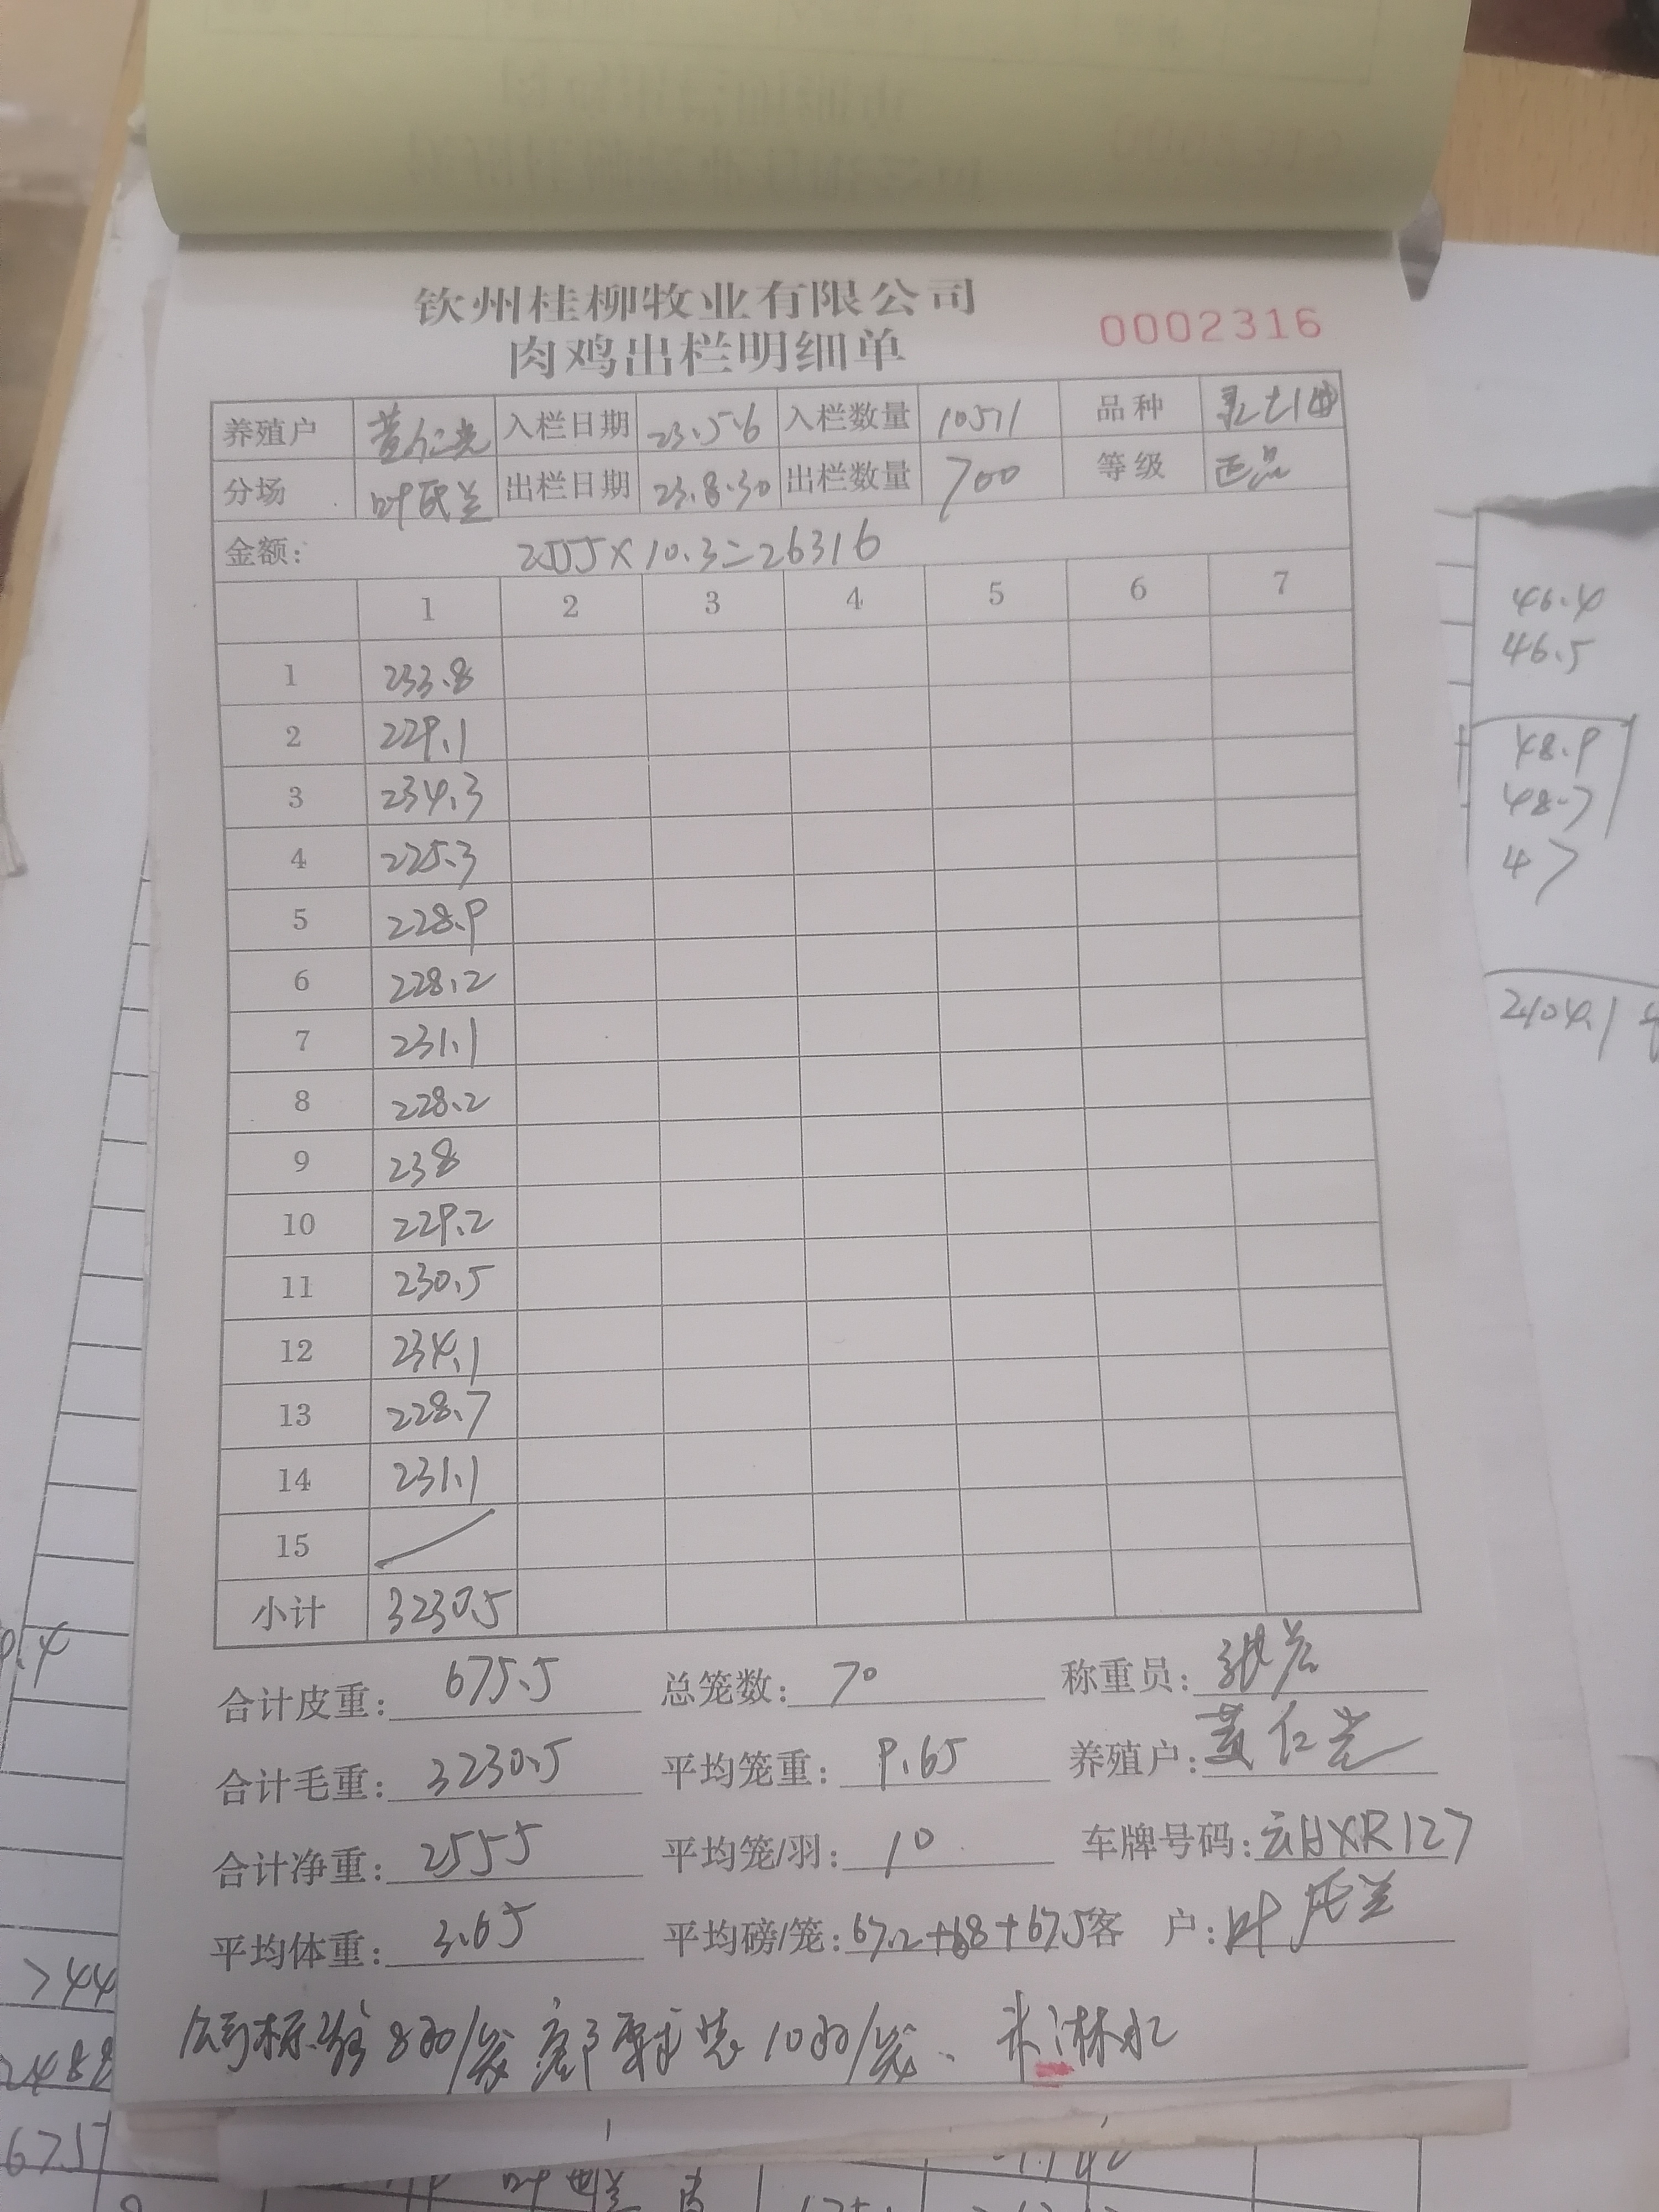 钦州桂柳牧业有限公司
肉鸡出栏明细单 0002316
养殖户 黄仁光 入栏日期 23.5.6 入栏数量 10571 品种
分场 叶民兰 出栏日期 23.8.30 出栏数量 700 等级 正品
金额: 2555×10.3=26316
1 2 3 4 5 6 7
1 233.8
2 229.1
3 234.3
4 225.3
5 228.9
6 228.2
7 231.1
8 228.2
9 238
10 229.2
11 230.5
12 234.1
13 228.7
14 231.1
15
小计 3230.5
合计皮重: 675.5 总笼数: 70 称重员:
合计毛重: 3230.5 平均笼重: 9.65 养殖户: 黄仁光
合计净重: 2555 平均笼/羽: 10 车牌号码: 云HXR127
平均体重: 3.65 平均磅/笼: 67.2+68+67.5 客 户: 叶民兰
公司标准8羽/笼 客户要求装10羽/笼、未淋水
46.4
46.5
48.9
48.7
47
2104.1
9.4
744
2488
67.57